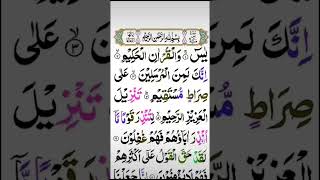 بِسْمِ اللهِ الرَّحْمٰنِ الرَّحِيْمِ
يٰسٓ ۚ وَالْقُرْاٰنِ الْحَكِيْمِ ۙ
اِنَّكَ لَمِنَ الْمُرْسَلِيْنَ ۙ عَلٰى
صِرَاطٍ مُّسْتَقِيْمٍ ؕ تَنْزِيْلَ
الْعَزِيْزِ الرَّحِيْمِ ۙ لِتُنْذِرَ قَوْمًا مَّاۤ
اُنْذِرَ اٰبَآؤُهُمْ فَهُمْ غٰفِلُوْنَ
لَقَدْ حَقَّ الْقَوْلُ عَلٰٓى اَكْثَرِهِمْ